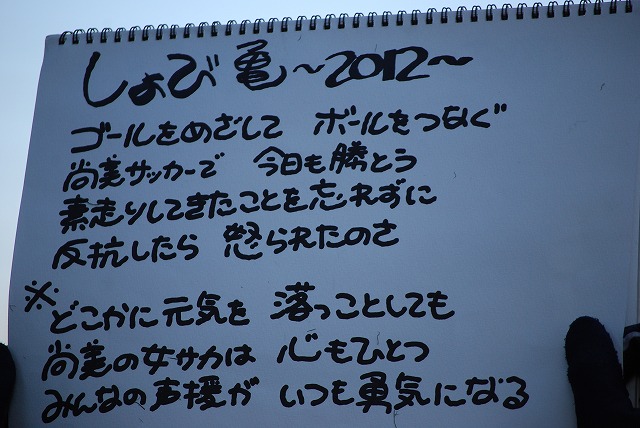 しょび亀〜2012〜
ゴールをめざして ボールをつなぐ
尚美サッカーで 今日も勝とう
素走りしてきたことを忘れずに
反抗したら 怒られたのさ
※どこかに元気を 落っことしても
尚美の女サカは 心もひとつ
みんなの声援が いつも勇気になる